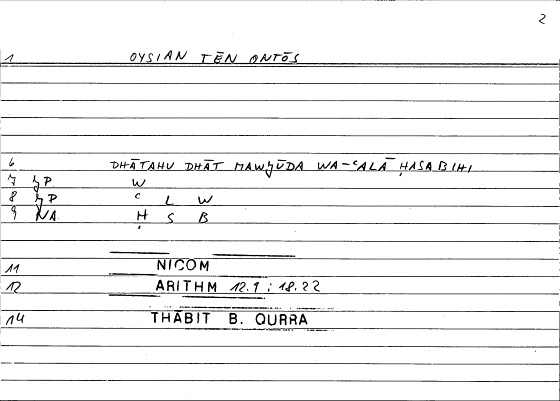 2
1 OYSIAN TĒN ONTŌS
6 DHĀTAHU DHĀT MAWǧŪDA WA-ʿALĀ ḤASABIHI
7 ǧP W
8 ǧP ʿ L W
9 NA. Ḥ S B
11 NICOM
12 ARITHM 12.9 ; 18.22
14 THĀBIT B. QURRA